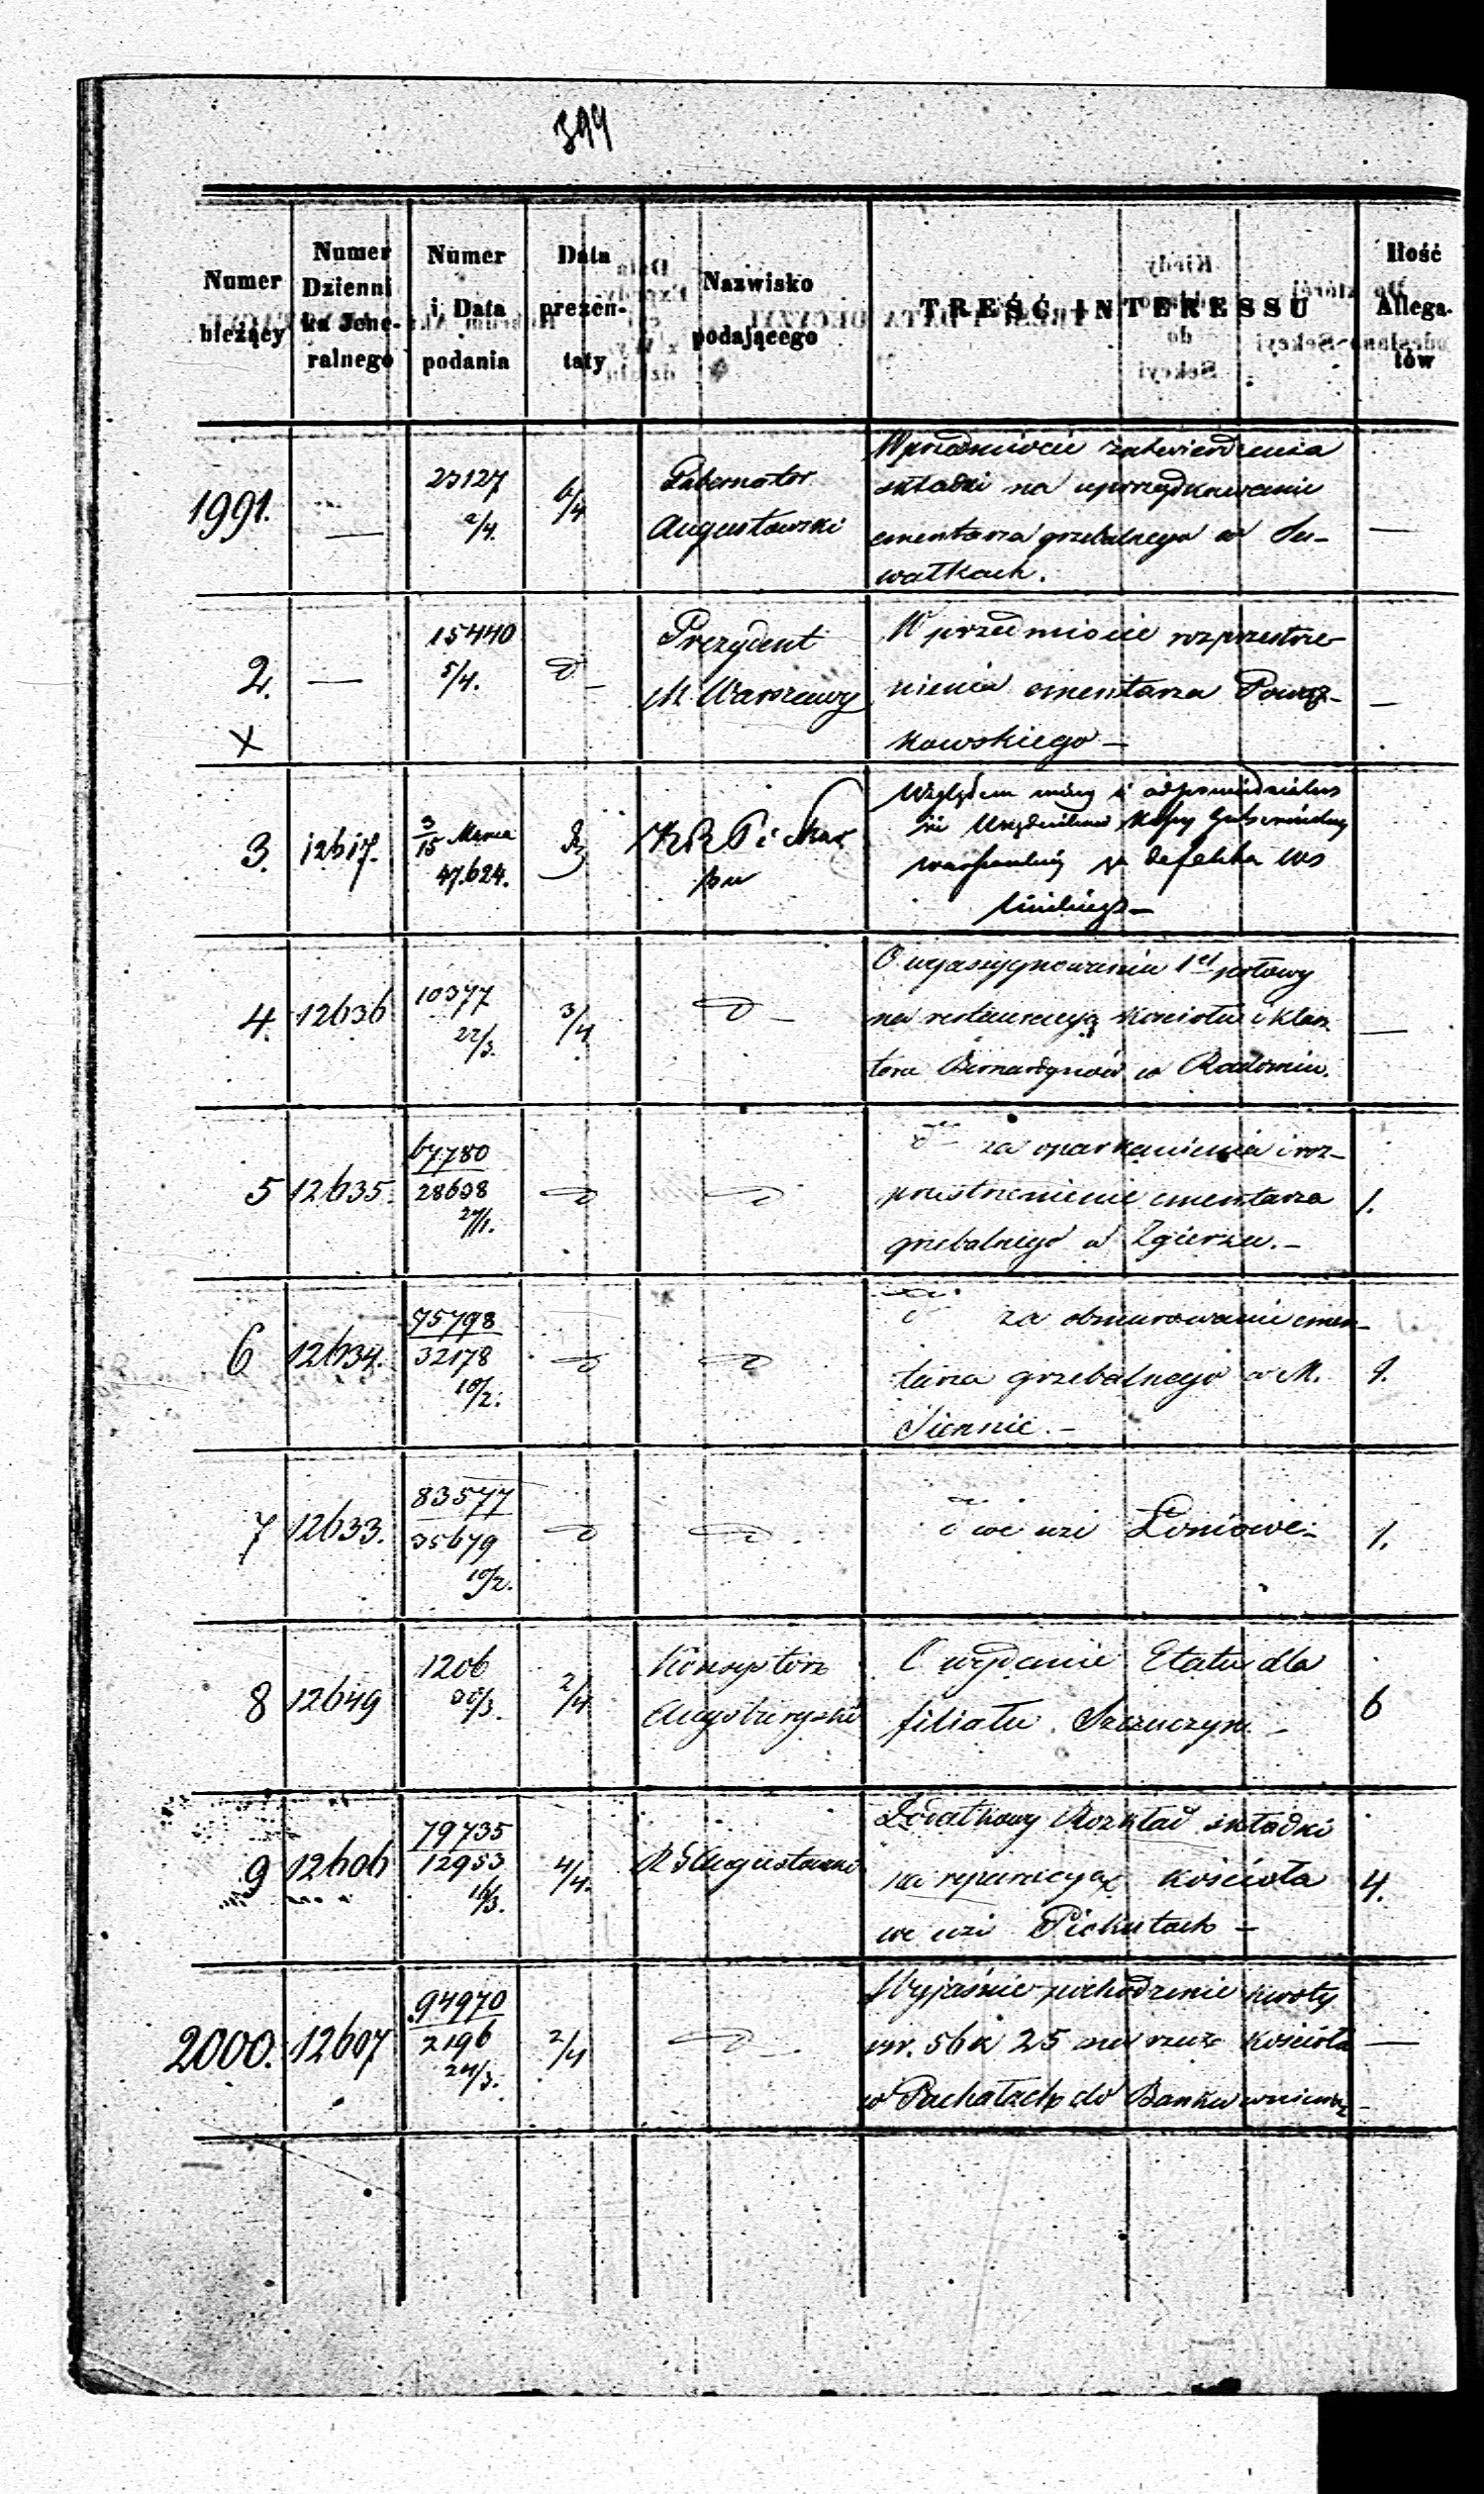 399
Numer bieżący
Numer Dzienni ka Jene- ralnego
Numer i Data podania
Data prezen- taty
Nazwisko podającego
TREŚĆ INTERESSU
Ilość Allega- tów
1991. — 23127 2/4. 6/4 Gubernator Augustowski —
W przedmiocie zatwierdzenia
składki na uporządkowanie
cmentarza grzebalnego w Su-
wałkach.
2. X — 15440 5/4. d — Prezydent M. Warszawy —
W przedmiocie rozprzestrze-
nienia cmentarza Powąz-
kowskiego —
3. 12617. 3/15 Marca 47.624. KRP i Skar bu
Względem
Kassy
defekta
4. 12636 10377 22/3. 3/4 d — —
O wyassygnowaniu 1ej połowy
na restauracyą kościoła i klasz
toru Bernardynów w Radomiu.
5 12635. 67780 28638 27/1. d d 1.
d za oparkanienie i roz-
przestrzenienie cmentarza
grzebalnego w Zgierzu. —
6 12634. 75798 32178 10/2. d d 1.
d za obmurowanie cmen-
tarza grzebalnego w M.
Siennie. —
7 12633. 83577 35679 10/2. d d 1.
d we wsi Łoniowie
8 12649 1206 30/3. 2/4 Konsystorz 6
O wydanie Etatu dla
filiału Szczuczyn. —
9 12606 79735 12953 16/3. 4/4. R G Augustowski 4.
Dodatkowy Rozkład składki
na reparacyą kościoła
we wsi —
2000. 12607 94970 2196 24/3. 2/4 d — —
Wyjaśnie pochodzenie kwoty
rsr. 56 k 25 na rzecz kościoła
w do Banku